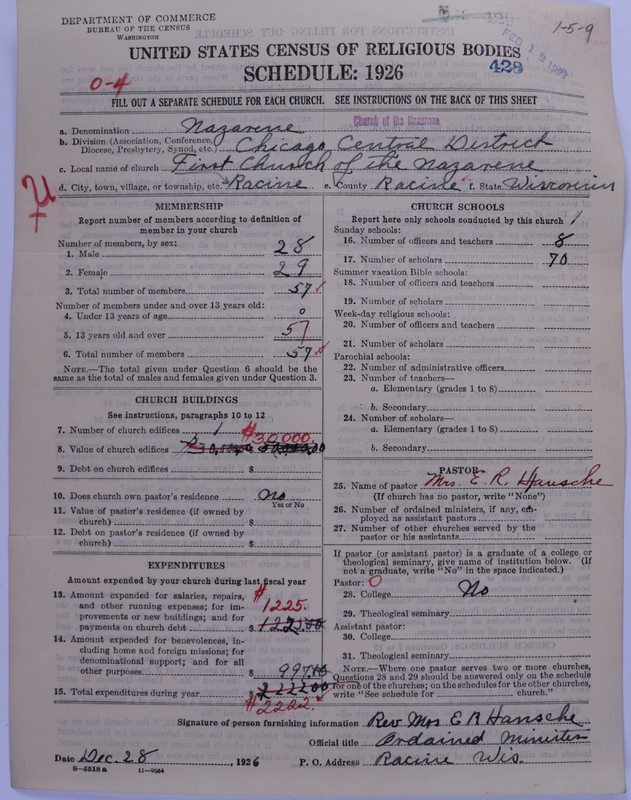 DEPARTMENT OF COMMERCE
BUREAU OF THE CENSUS
WASHINGTON
1-5-9
FEB 12
UNITED STATES CENSUS OF RELIGIOUS BODIES
SCHEDULE: 1926
428
0-4
FILL OUT A SEPARATE SCHEDULE FOR EACH CHURCH. SEE INSTRUCTIONS ON THE BACK OF THIS SHEET
Church of the Nazarene
a. Denomination Nazarene
b. Division (Association, Conference, Diocese, Presbytery, Synod, etc.) Chicago Central District
c. Local name of church First Church of the Nazarene
d. City, town, village, or township, etc. Racine e. County Racine f. State Wisconsin
MEMBERSHIP
Report number of members according to definition of
member in your church
Number of members, by sex:
1. Male 28
2. Female 29
3. Total number of members 57
Number of members under and over 13 years old:
4. Under 13 years of age 0
5. 13 years old and over 57
6. Total number of members 57
NOTE.—The total given under Question 6 should be
same as the total of males and females given under Question 3.
CHURCH BUILDINGS
See instructions, paragraphs 10 to 12
7. Number of church edifices 1
$30,000.
8. Value of church edifices $
9. Debt on church edifices $
10. Does church own pastor's residence No
Yes or No
11. Value of pastor's residence (if owned by
church) $
12. Debt on pastor's residence (if owned by
church) $
EXPENDITURES
Amount expended by your church during last fiscal year
13. Amount expended for salaries, repairs,
and other running expenses; for im-
provements or new buildings; and for
payments on church debt $ 1225.
14. Amount expended for benevolences, in-
cluding home and foreign missions; for
denominational support; and for all
other purposes 997
15. Total expenditures during year $ 2222.00
$2222.
CHURCH SCHOOLS
Report here only schools conducted by this church 1
Sunday schools:
16. Number of officers and teachers 8
17. Number of scholars 70
Summer vacation Bible schools:
18. Number of officers and teachers
19. Number of scholars
Week-day religious schools:
20. Number of officers and teachers
21. Number of scholars
Parochial schools:
22. Number of administrative officers
23. Number of teachers—
a. Elementary (grades 1 to 8)
b. Secondary
24. Number of scholars—
a. Elementary (grades 1 to 8)
b. Secondary
PASTOR
25. Name of pastor Mrs. E. R. Hansche
(If church has no pastor, write "None")
26. Number of ordained ministers, if any, em-
ployed as assistant pastors
27. Number of other churches served by the
pastor or his assistants
If pastor (or assistant pastor) is a graduate of a college or
theological seminary, give name of institution below. (If
not a graduate, write "No" in the space indicated.)
Pastor: 0
28. College No
29. Theological seminary
Assistant pastor:
30. College
31. Theological seminary
NOTE.—Where one pastor serves two or more churches,
Questions 28 and 29 should be answered only on the schedule
for one of the churches; on the schedules for the other churches,
write "See schedule for church."
Signature of person furnishing information Rev Mrs E R Hansche
Official title Ordained Minister
Date Dec. 28, 1926 P. O. Address Racine Wis.
8—5518a 11—9054